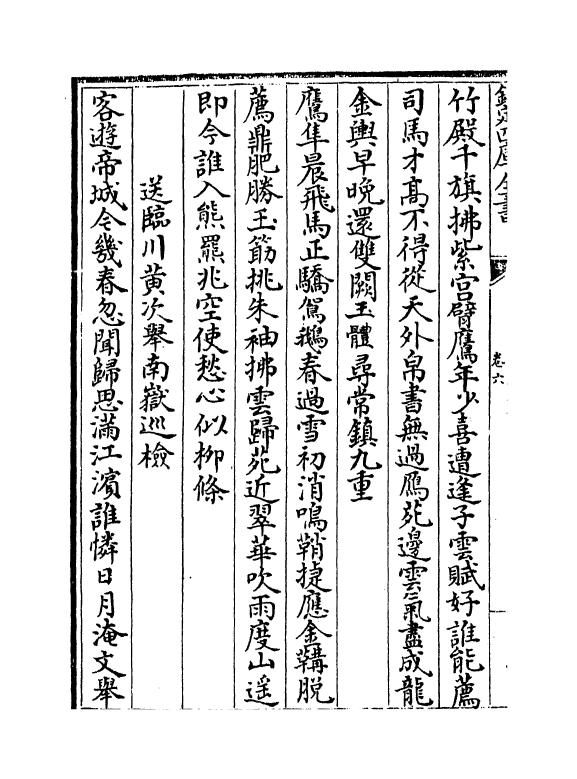 欽定四庫全書
卷六
竹殿千旗拂紫宫臂鷹年少喜遭逢子雲賦好誰能薦
司馬才髙不得從天外帛書無過鴈苑邊雲氣盡成龍
金輿早晩還雙闕玉體尋常鎮九重
鷹隼晨飛馬正驕鴐鵝春過雪初消鳴鞘捷應金鞲脱
薦鼎肥勝玉筯挑朱袖拂雲歸苑近翠華吹雨度山遥
即今誰入熊羆兆空使愁心似柳條
送臨川黄次舉南嶽巡檢
客遊帝城今幾春忽聞歸思滿江濱誰憐日月淹文舉